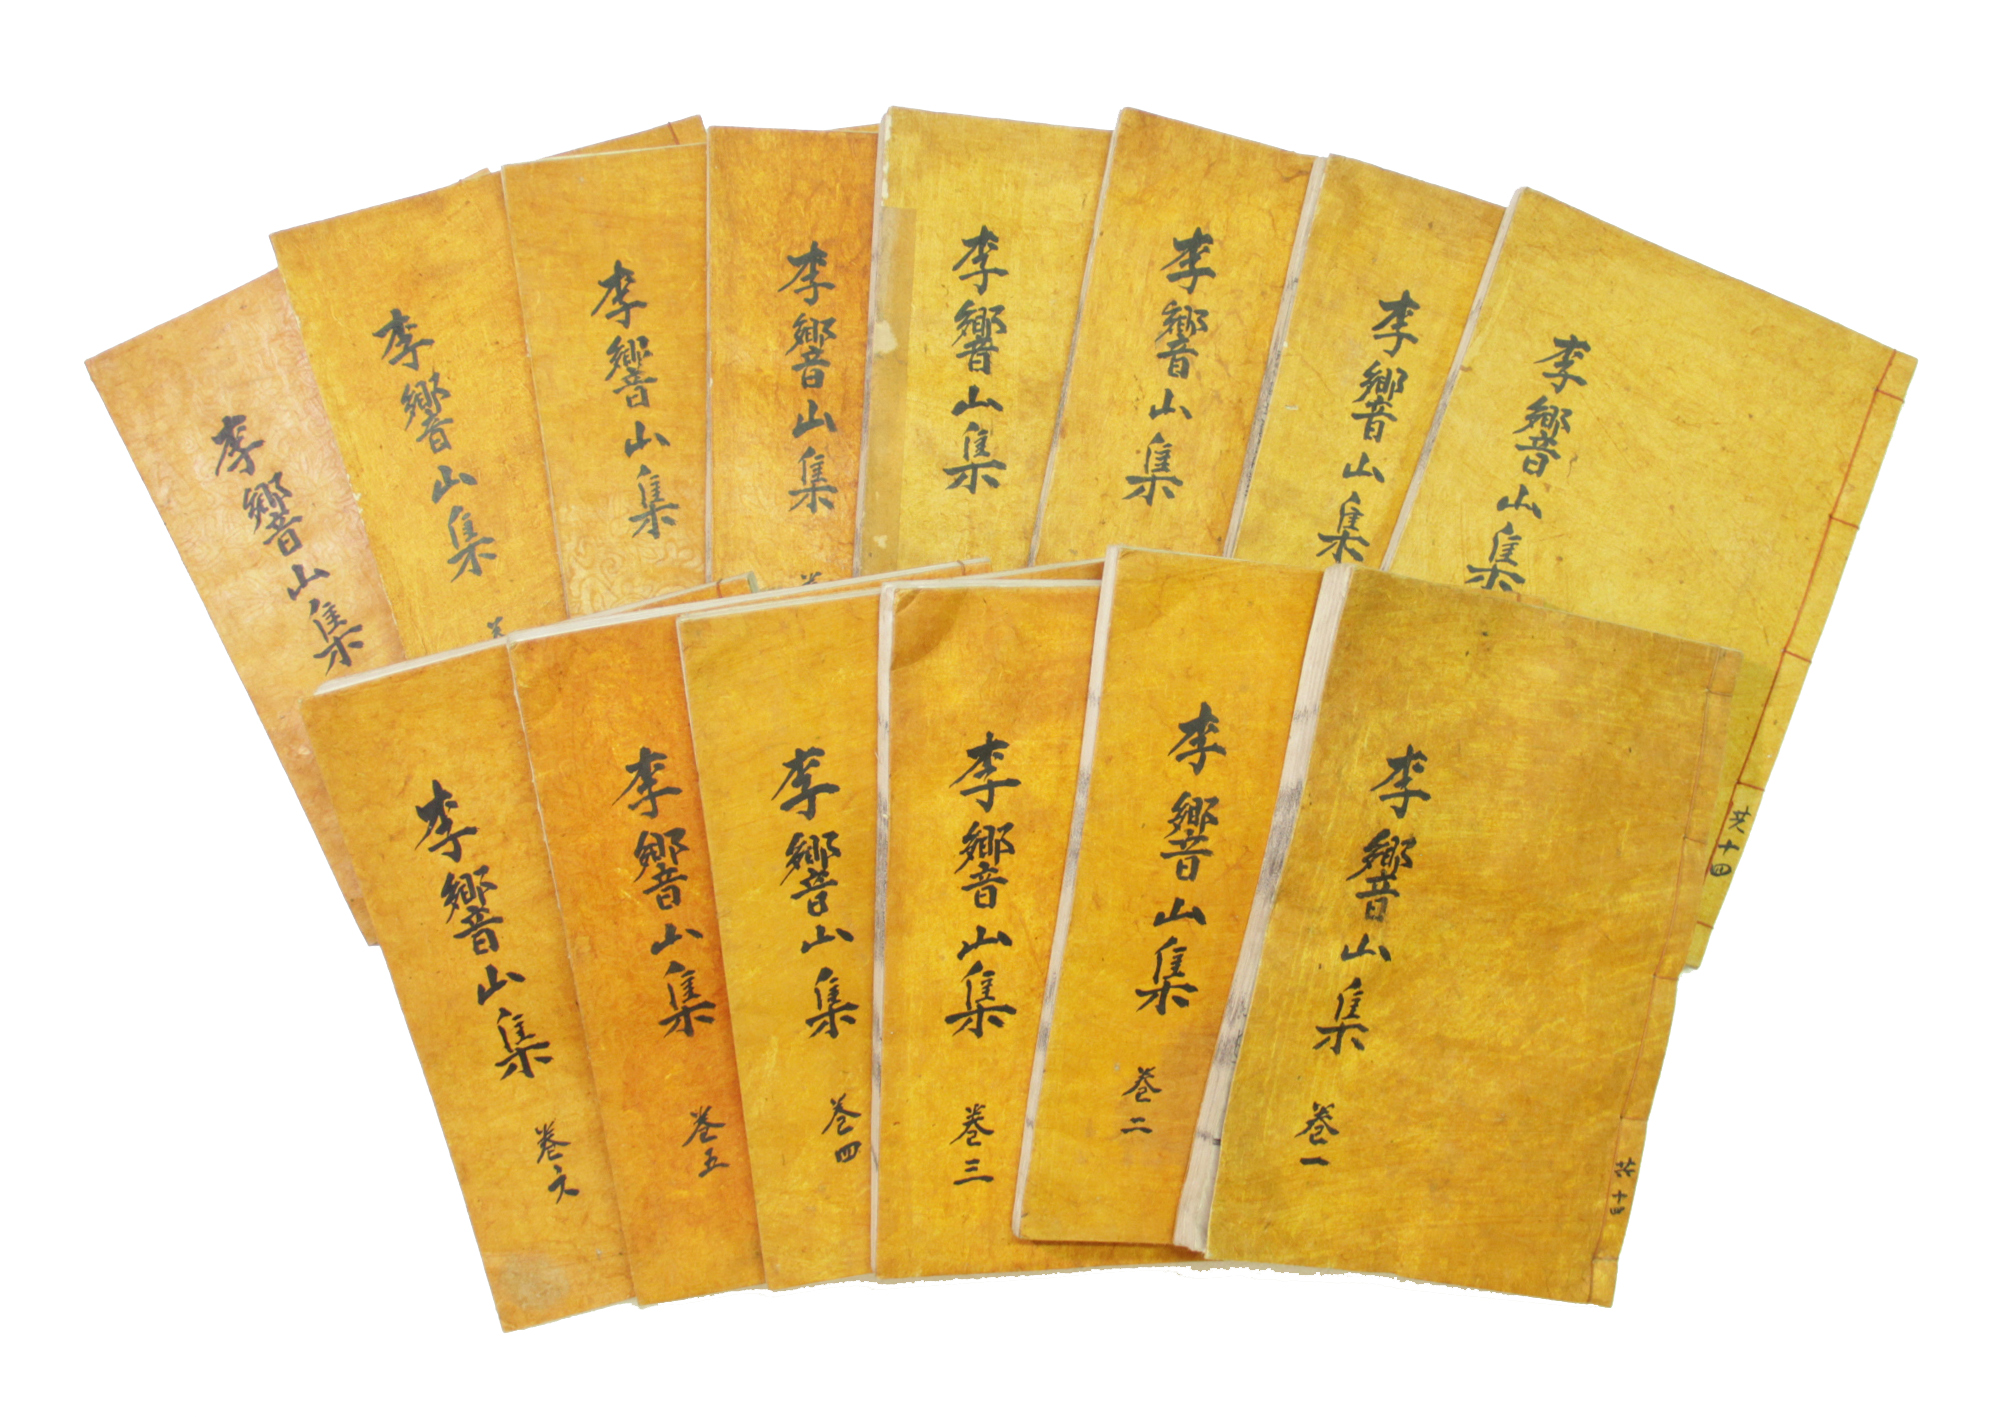 李響山集
李響山集
李響山集
李響山集
李響山集
李響山集
李響山集
李響山集
共十四
李響山集 卷一
共十四
李響山集 卷二
李響山集 卷三
李響山集 卷四
李響山集 卷五
李響山集 卷六